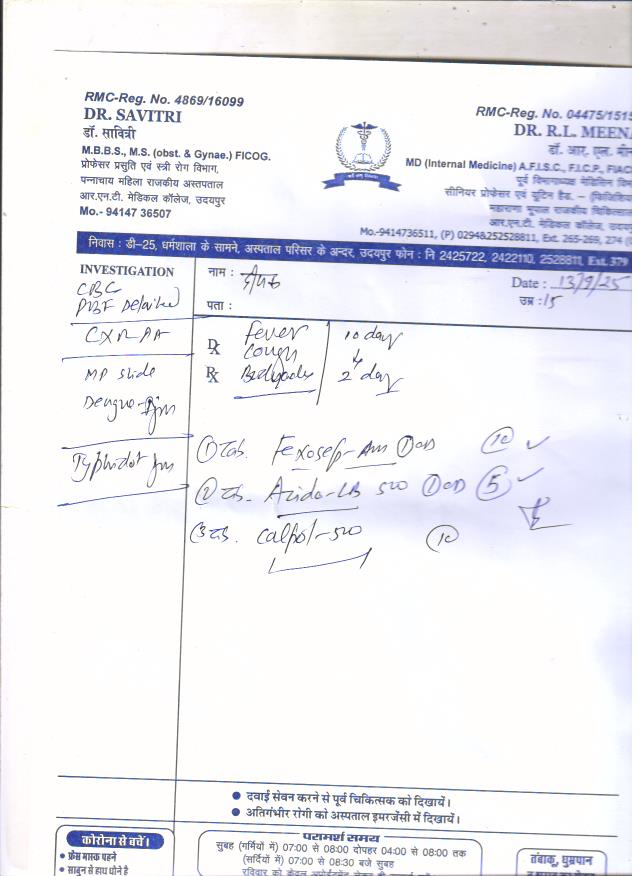 RMC-Reg. No. 4869/16099
DR. SAVITRI
डॉ. सावित्री
M.B.B.S., M.S. (obst. & Gynae.) FICOG.
प्रोफेसर प्रसुति एवं स्त्री रोग विभाग,
पन्नाचाय महिला राजकीय अस्तपताल
आर.एन.टी. मेडिकल कॉलेज, उदयपुर
Mo.- 94147 36507
RMC-Reg. No. 04475/1515
DR. R.L. MEENA
डॉ. आर. एल. मीन
MD (Internal Medicine) A.F.I.S.C., F.I.C.P., FIAC
पूर्व विभागाध्यक्ष मेडिसिन विभ
सीनियर प्रोफेसर एवं यूनिट हैड. – (फिजिशिय
महाराणा भूपाल राजकीय चिकित्सा
आर.एन.टी. मेडिकल कॉलेज, उदयपु
Mo.-9414736511, (P) 0294&252528811, Ext. 265-269, 274 (
निवास : डी-25, धर्मशाला के सामने, अस्पताल परिसर के अन्दर, उदयपुर फोन : नि 2425722, 2422110, 2528811, Ext. 379
INVESTIGATION
CBC
PBF Detailed
CXR PA
MP slide
Dengue-
Typhidot
नाम :
Date : 13/9/25
पता :
उम्र : 15
Fever 10 day
Cough
Bodyache 2 day
① Tab. Fexosef-Am ① OD 10
② Tab. Azido-LB 500 ① OD 5
③ Tab. Calpol-500 10
● दवाई सेवन करने से पूर्व चिकित्सक को दिखायें।
● अतिगंभीर रोगी को अस्पताल इमरजेंसी में दिखायें।
कोरोना से बचें।
● फ्रेस मास्क पहने
● साबुन से हाथ धोने है
परामर्श समय
सुबह (गर्मियों में) 07:00 से 08:00 दोपहर 04:00 से 08:00 तक
(सर्दियों में) 07:00 से 08:30 बजे सुबह
तंबाकू, धुम्रपान